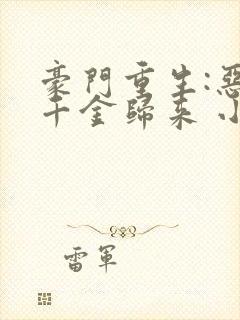 豪門重生:惡
千金歸來 小
雷軍